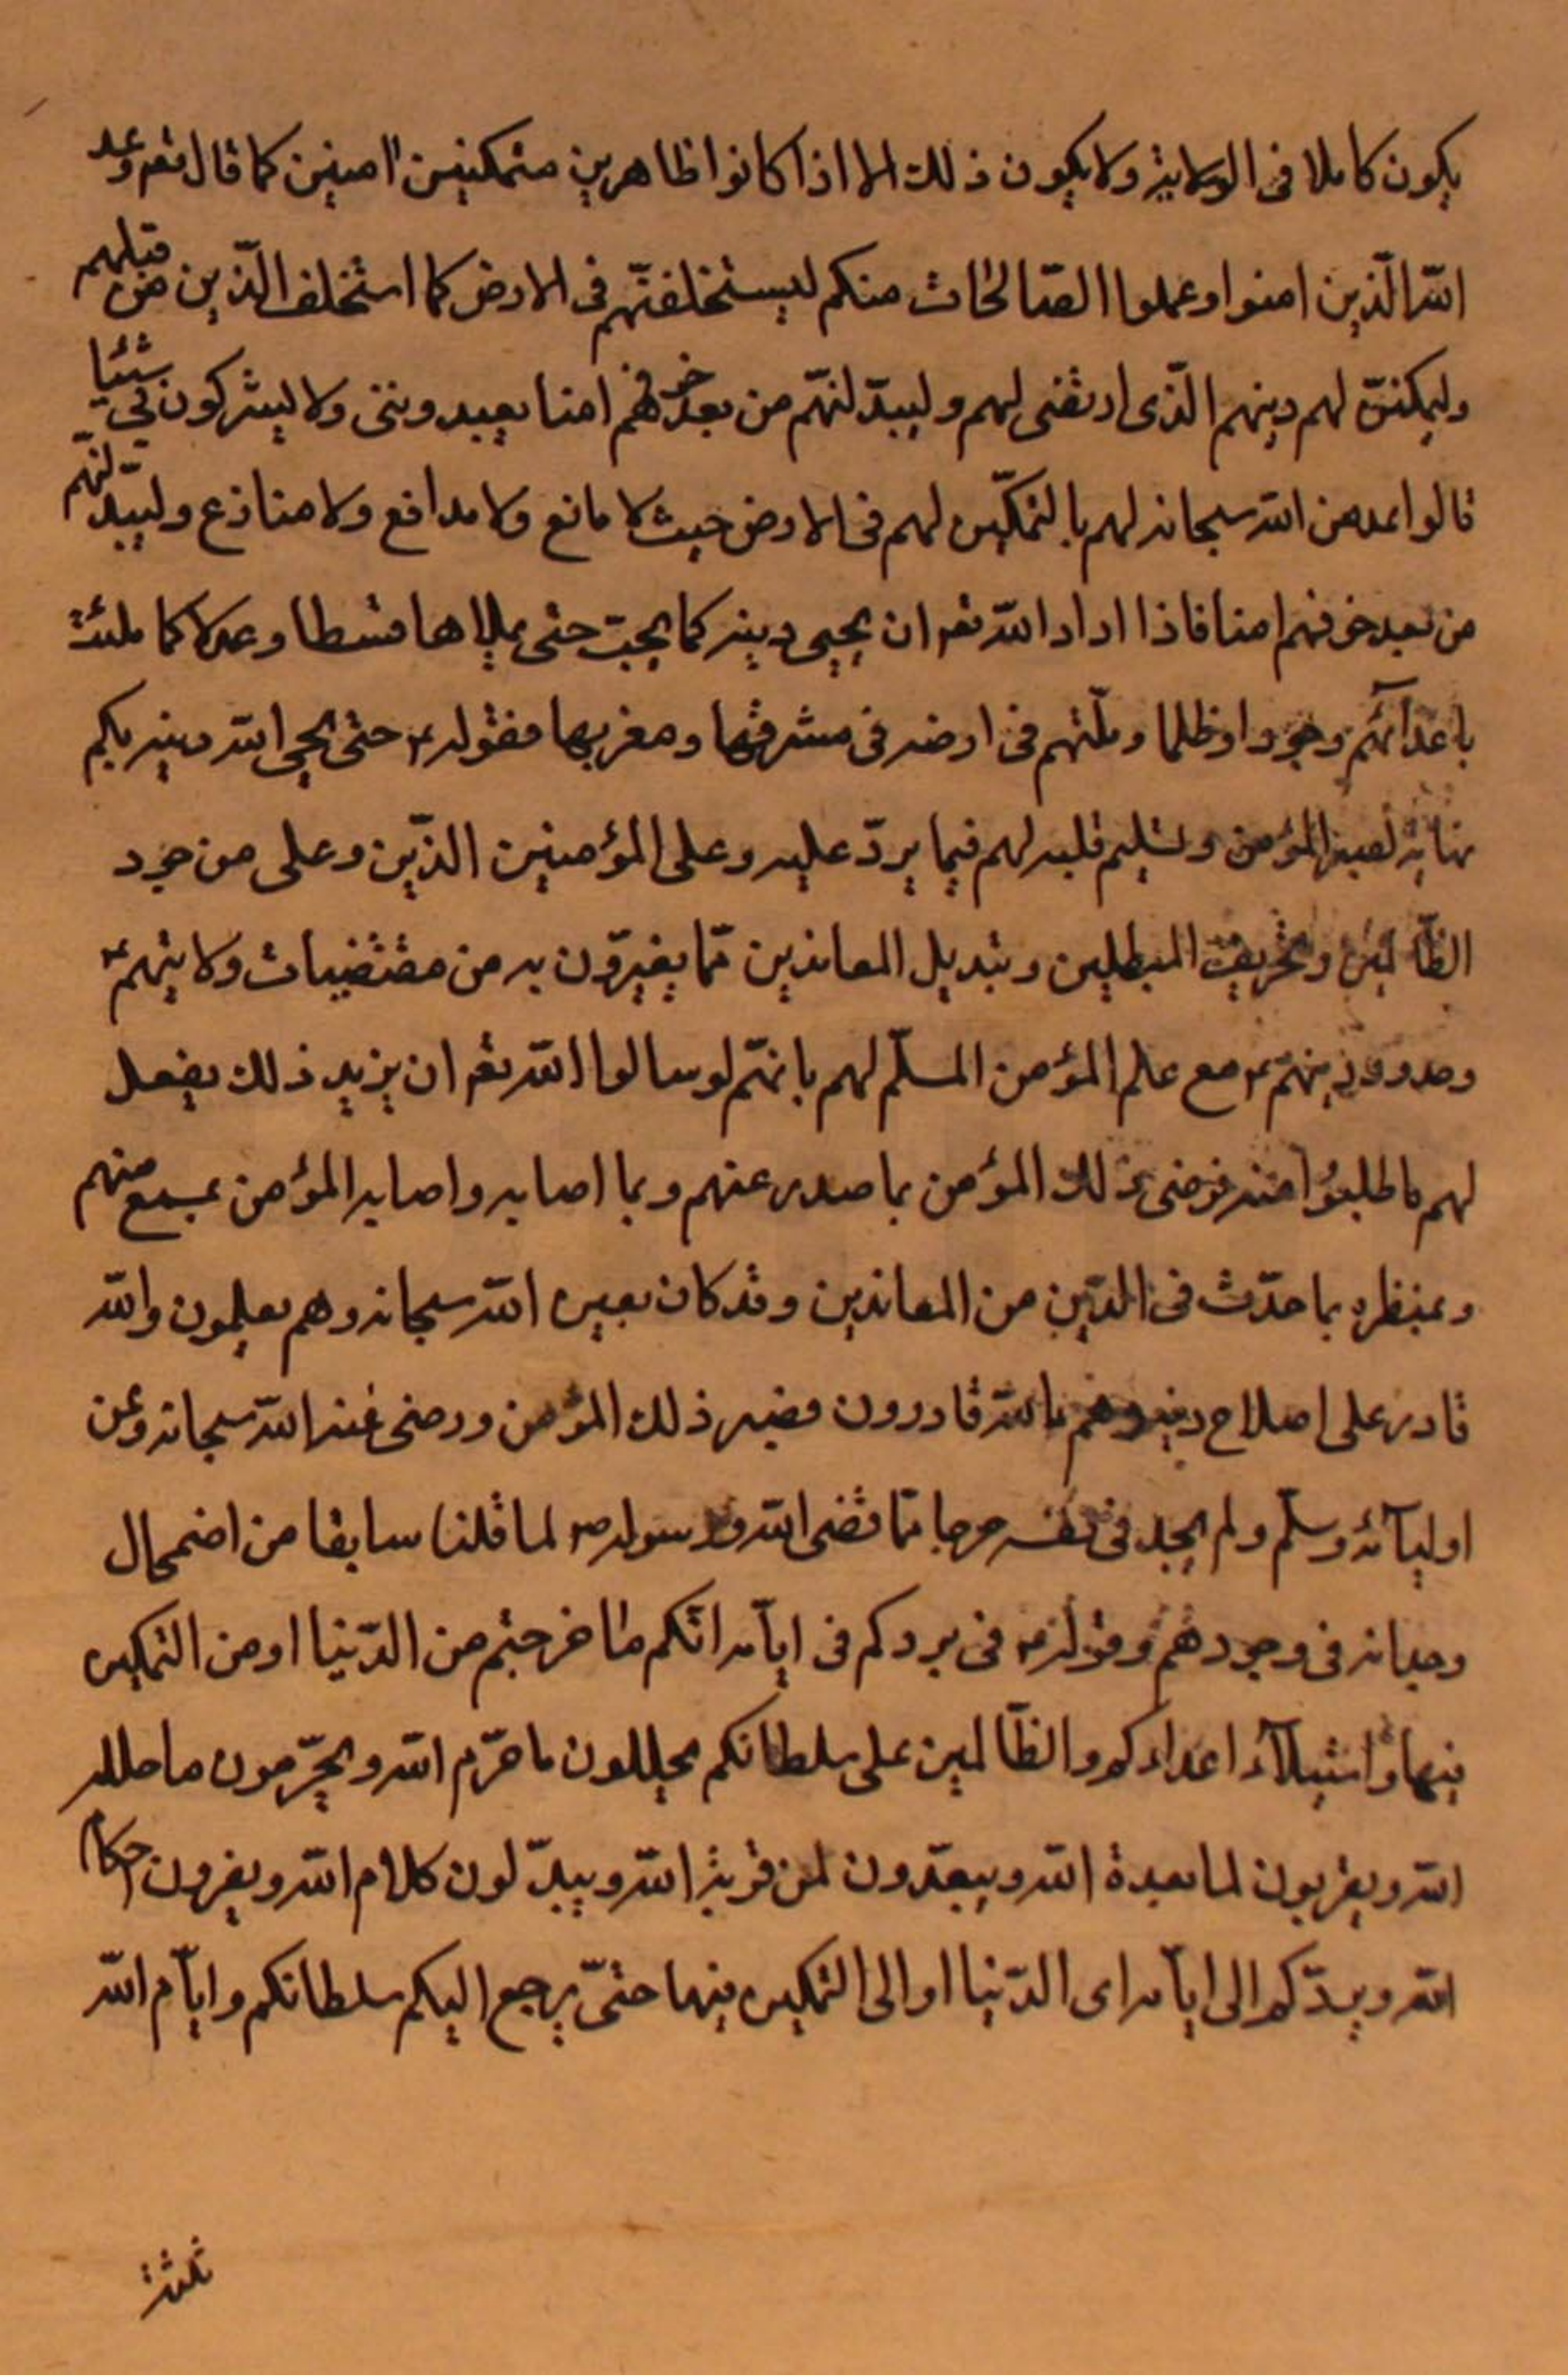 يكون كاملا فى الولاية ولا يكون ذلك الا اذا كانوا ظاهرين متمكنين امنين كما قال تعم وعد
الله الّذين امنوا وعملوا الصّالحات منكم ليستخلفنّهم فى الارض كما استخلف الّذين من قبلهم
وليمكننّ لهم دينهم الّذى ارتضى لهم وليبدّلنّهم من بعد خوفهم امنا يعبدوننى ولا يشركون بي شيئا
قالوا عد من الله سبحانه لهم بالتمكّين لهم فى الارض حيث لا مانع ولا مدافع ولا منازع وليبدّلنّهم
من بعد خوفهم امنا فاذا اراد الله تعم ان يحيى دينه كما يحبّ حتى يملاها قسطا وعدلا كما ملئت
باعدآئهم وجورا وظلما وملّتهم فى ارضه فى مشرقها ومغربها فقوله ع حتى يحيى الله دينه بكم
نهاية لصبر المؤمن وتسليم قلبه لهم فيما يردّ عليه وعلى المؤمنين الدّين وعلى من جور
الظّالمين وتحريف المبطلين وتبديل المعاندين ممّا يغيّرون به من مقتضيات ولايتهم ع
وحدود دينهم ع مع علم المؤمن المسلّم لهم بانهّم لو سالوا الله تعم ان يزيد ذلك يفعل
لهم ما طلبوا منه فرضى ذلك المؤمن بما صدر عنهم وبما اصابه واصابه المؤمن بمسمع منهم
وبمنظره بما حدّث فى الدّين من المعاندين وقد كان بعين الله سبحانه وهم يعلمون والله
قادر على اصلاح دينه وهم بالله قادرون فصبر ذلك المؤمن ورضى عند الله سبحانه وعن
اوليآئه وسلّم ولم يجد فى نفسه حرجا ممّا قضى الله ورسوله ص لما قلنا سابقا من اضمحلال
وجدانه فى وجودهم وقوله ع فى يردكم فى ايآمه انّكم لما خرجتم من الدّنيا او من التمكين
فيها واستيلآء اعداءكم والظّالمين على سلطانكم يحللون ما حرّم الله ويحرّمون ما حلله
الله ويقربون لما بعده الله ويبعّدون لمن قربه الله ويبدّلون كلام الله ويغيرون احكام
الله ويردّكم الى ايآمه اى الدّنيا او الى التمكين فيها حتىّ يرجع اليكم سلطانكم وايآم الله
ثلثة